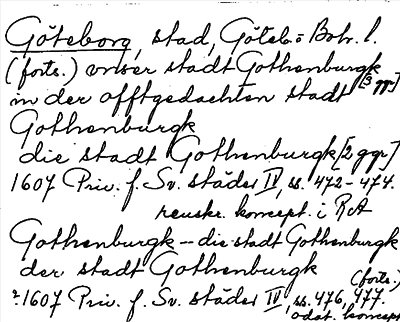 Göteborg, stad, Göteb. o Boh. l.
(forts.) unser stadt Gothenburgk
[3 ggr]
in der offtgedachten stadt
Gothenburgk
die stadt Gothenburgk [2 ggr]
1607 Priv. f. Sv. städer IV, ss. 472-474.
renskr. koncept i RA
Gothenburgk – die stadt Gothenburgk
der stadt Gothenburgk
(forts.)
?1607 Priv. f. Sv. städer IV, ss. 476, 477.
odat. koncept